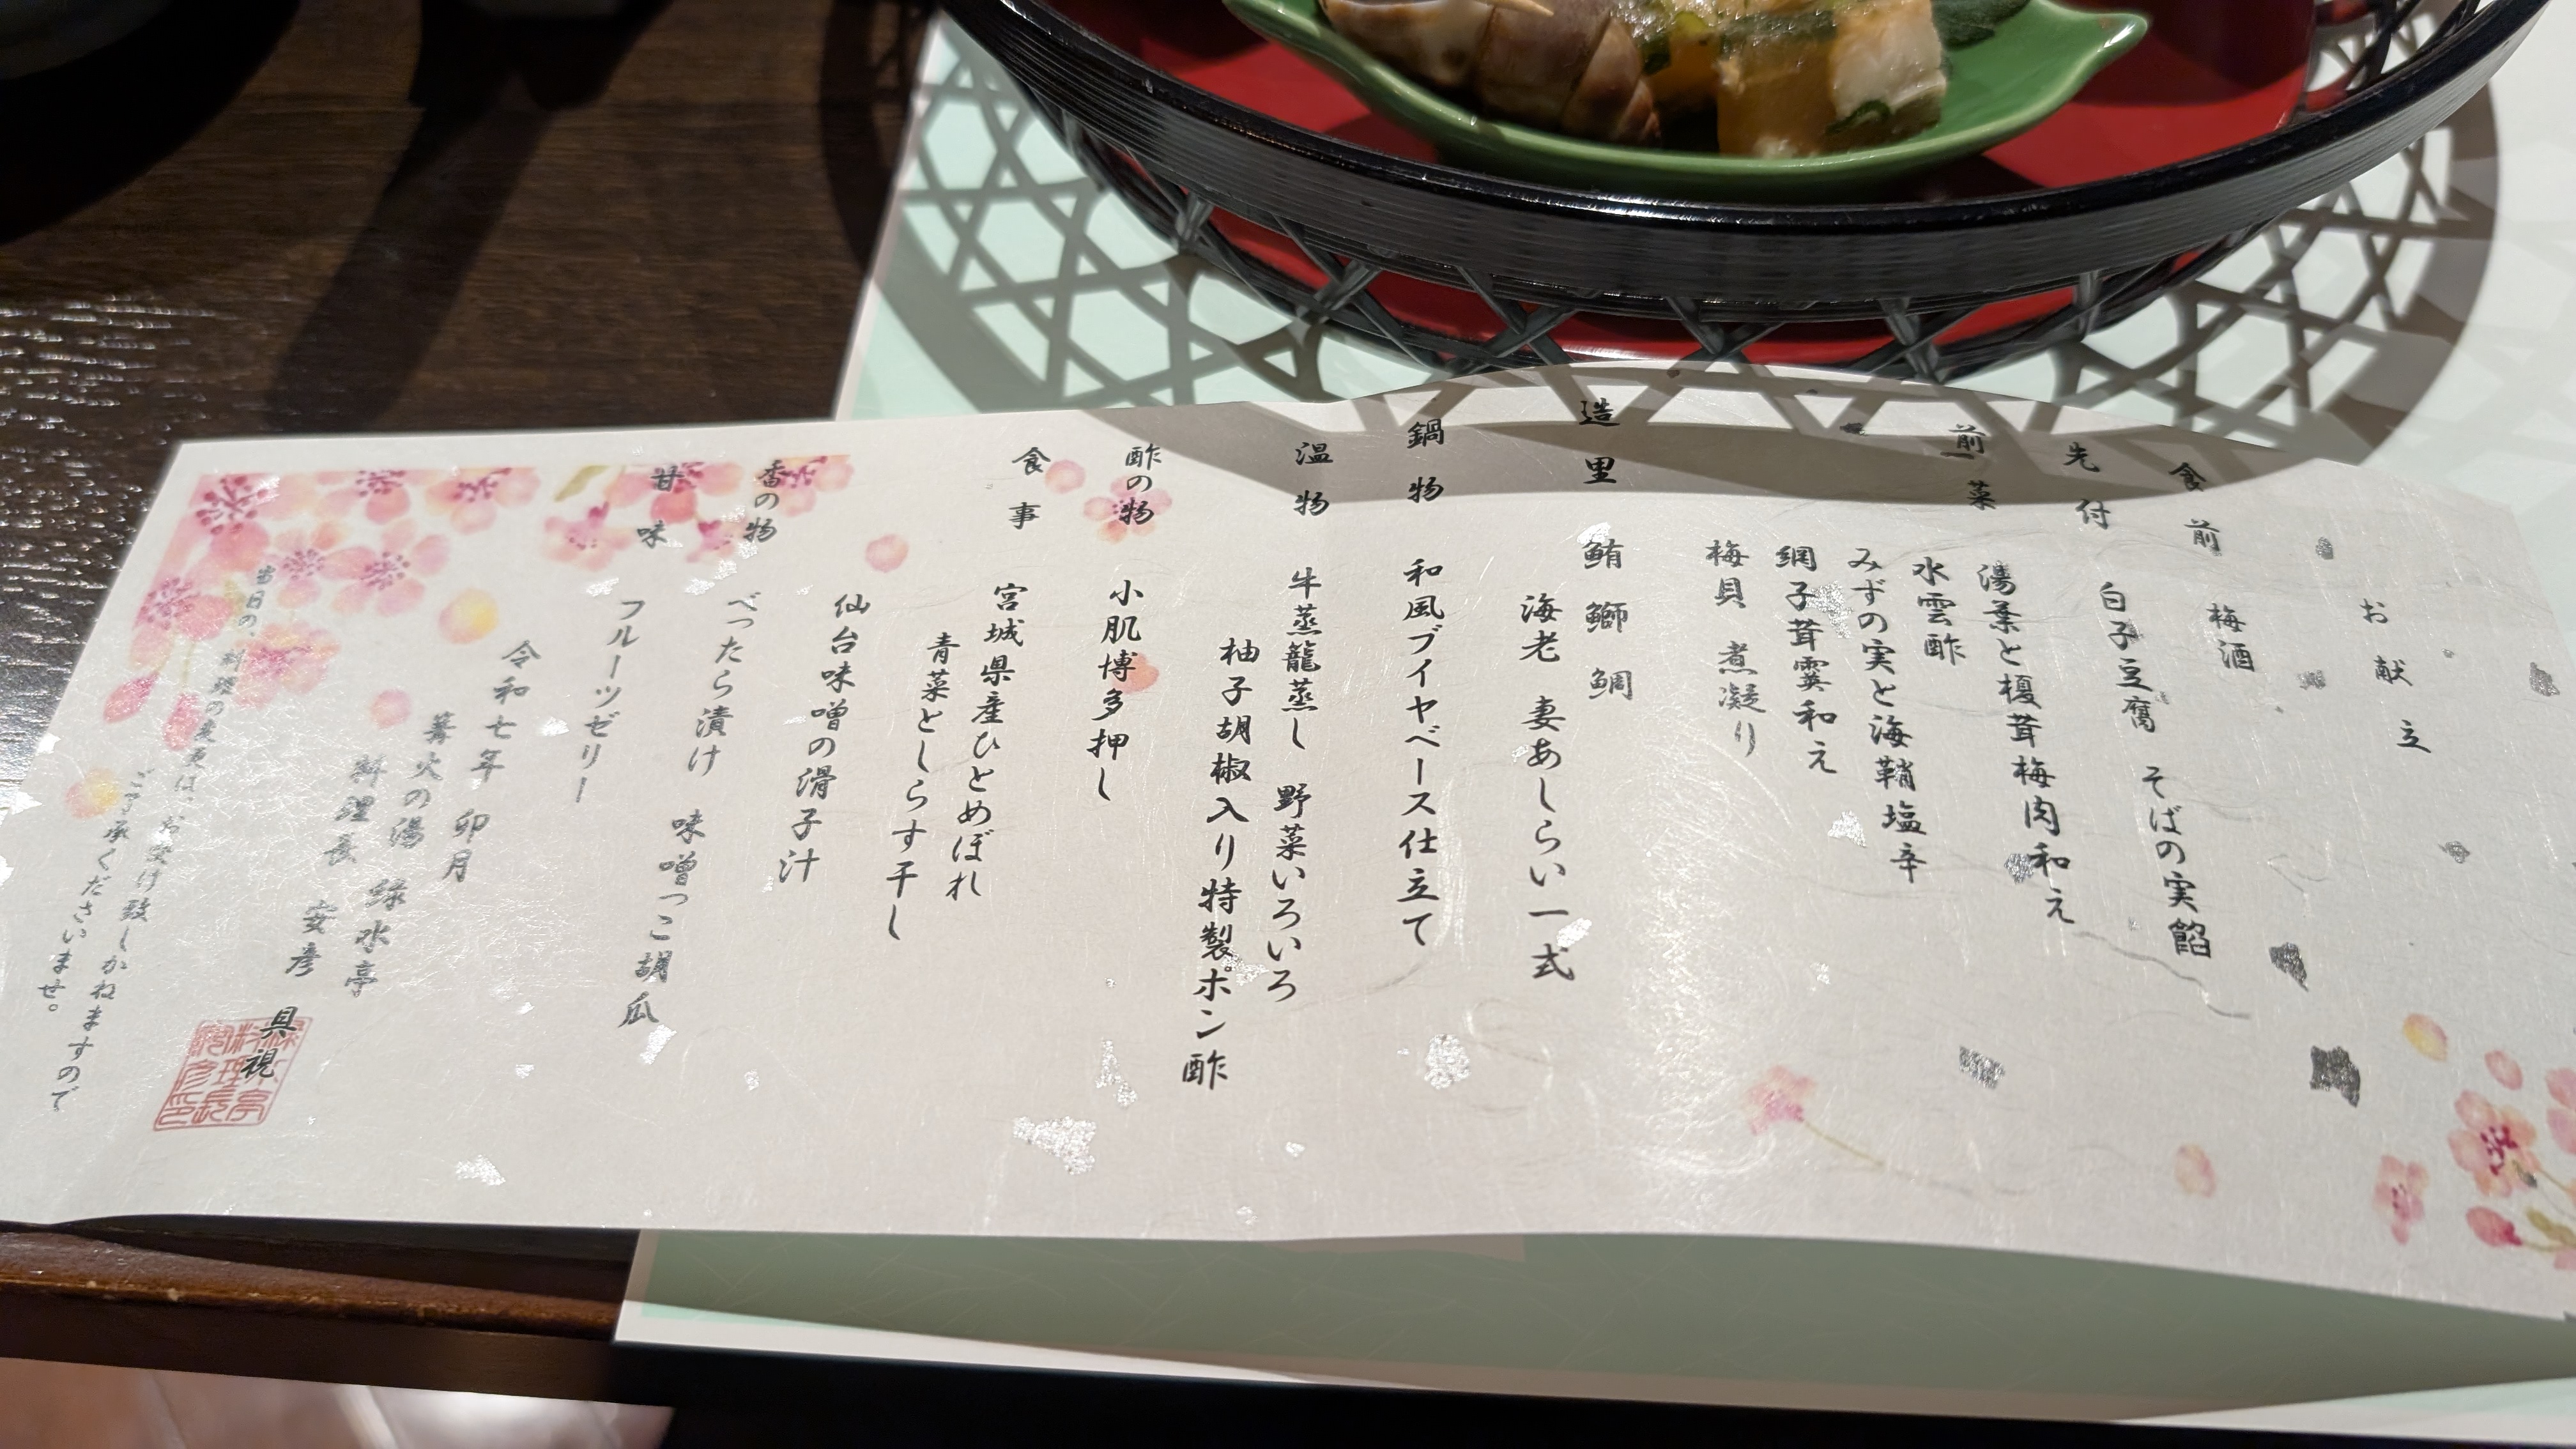 お献立
食前 梅酒
先付 白子豆腐 そばの実餡
前菜 湯葉と榎茸梅肉和え
水雲酢
みずの実と海鞘塩辛
網子茸霙和え
梅貝 煮凝り
造里 鮪 鰤 鯛
海老 妻あしらい一式
鍋物 和風ブイヤベース仕立て
温物 牛蒸籠蒸し 野菜いろいろ
柚子胡椒入り特製ポン酢
酢の物 小肌博多押し
食事 宮城県産ひとめぼれ
青菜としらす干し
仙台味噌の滑子汁
香の物 べったら漬け 味噌っこ胡瓜
甘味 フルーツゼリー
令和七年 卯月
篝火の湯 緑水亭
料理長 安彦 具視
当日の、料理の変更は、お受け致しかねますので
ご了承くださいませ。